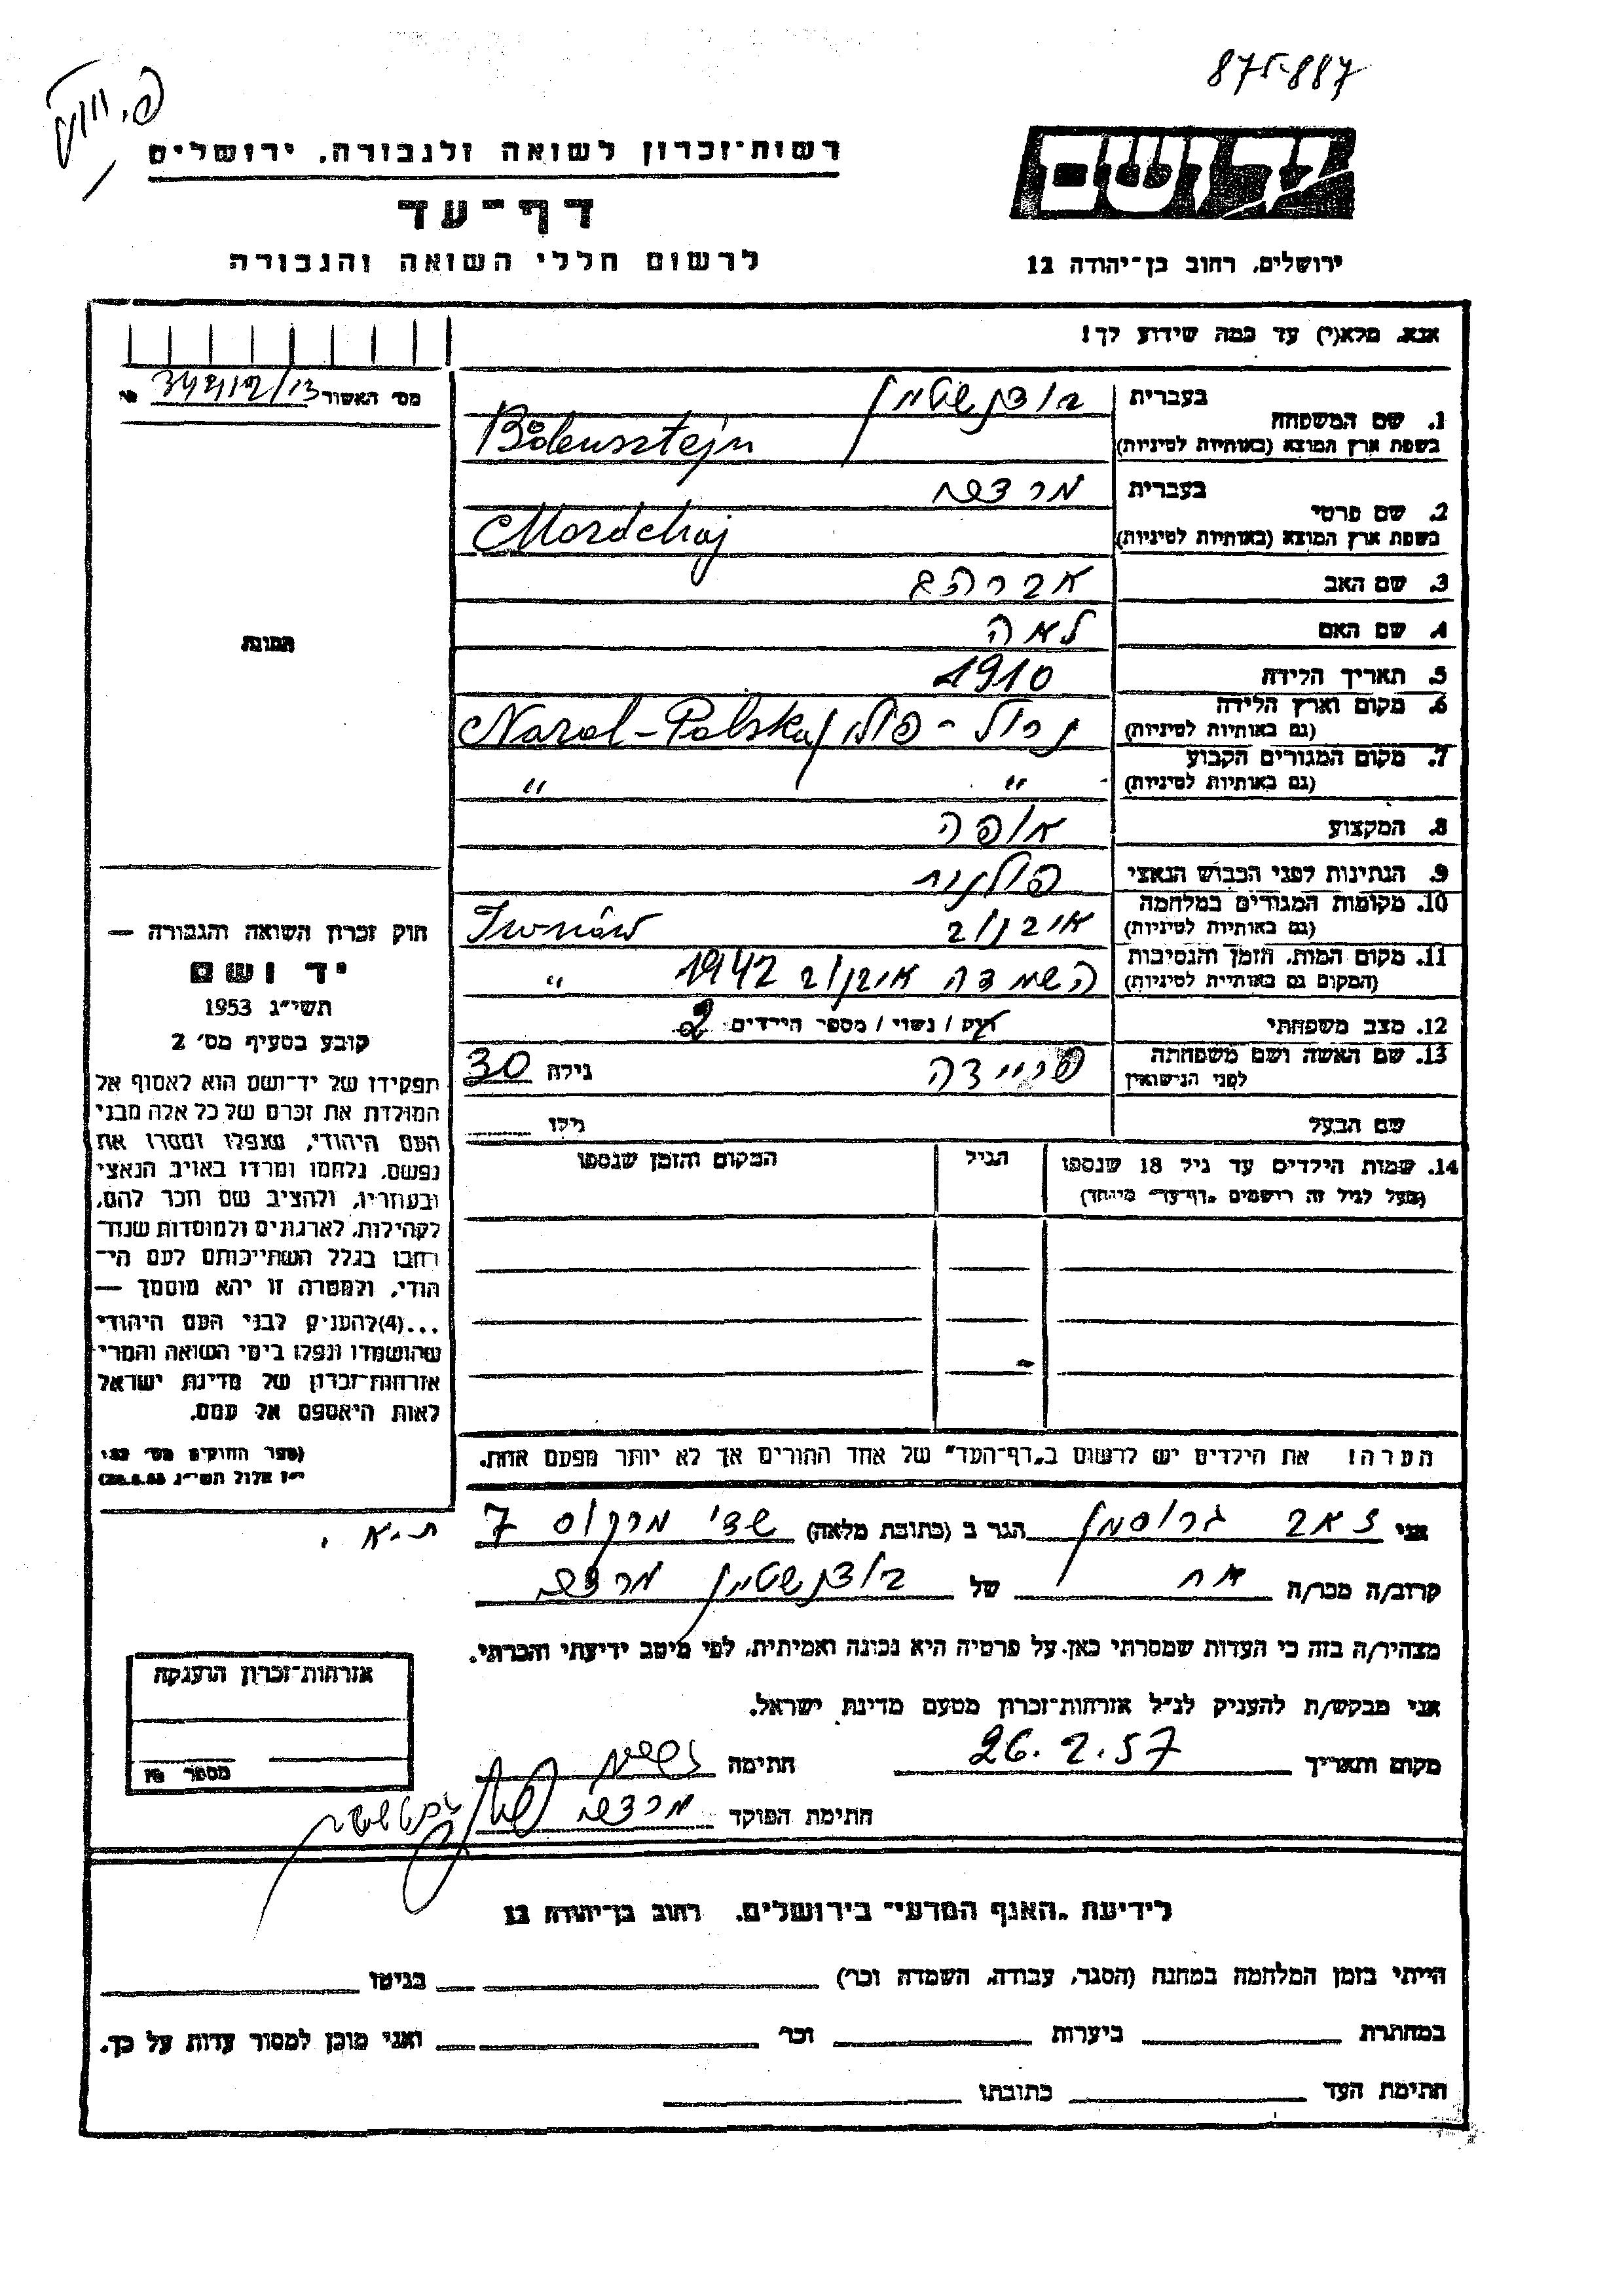 875-887
יד ושם
רשות־זכרון לשואה ולגבורה, ירושלים
דף־עד
לרשום חללי השואה והגבורה
ירושלים, רחוב בן־יהודה 12
אנא, מלא(י) עד כמה שידוע לך!
מס׳ האשור
1. שם המשפחה בעברית בודנשטיין
בשפת ארץ המוצא (באותיות לטיניות) Bodensztejn
2. שם פרטי בעברית מרדכי
בשפת ארץ המוצא (באותיות לטיניות) Mordchaj
3. שם האב אברהם
4. שם האם לאה
5. תאריך הלידה 1910
6. מקום וארץ הלידה (גם באותיות לטיניות) נרול - פולין Narol-Polska
7. מקום המגורים הקבוע (גם באותיות לטיניות) " "
8. המקצוע אופה
9. הנתינות לפני הכבוש הנאצי פולנית
10. מקומות המגורים במלחמה (גם באותיות לטיניות)
11. מקום המות, הזמן והנסיבות (המקום גם באותיות לטיניות) השמדה 1942 "
12. מצב משפחתי רוק / נשוי / מספר הילדים 2
13. שם האשה ושם משפחתה לפני הנישואין פריידה גילה 30
שם הבעל גילו
14. שמות הילדים עד גיל 18 שנספו הגיל המקום והזמן שנספו
(מעל לגיל זה רושמים "דף־עד" מיוחד)
הערה! את הילדים יש לרשום ב"דף־העד" של אחד ההורים אך לא יותר מפעם אחת.
תמונה
חוק זכרון השואה והגבורה —
יד ושם
תשי״ג 1953
קובע בסעיף מס׳ 2
תפקידו של יד־ושם הוא לאסוף אל
המולדת את זכרם של כל אלה מבני
העם היהודי, שנפלו ומסרו את
נפשם, נלחמו ומרדו באויב הנאצי
ובעוזריו, ולהציב שם וזכר להם,
לקהילות, לארגונים ולמוסדות שנח־
רבו בגלל השתייכותם לעם הי־
הודי, ולמטרה זו יהא מוסמך —
...(4)להעניק לבני העם היהודי
שהושמדו ונפלו בימי השואה והמרי
אזרחות־זכרון של מדינת ישראל
לאות היאספם אל עמם.
(ספר החוקים מס׳ 132,
י״ז אלול תשי״ג 28.8.53)
אני זאב גרוסמן הגר ב (כתובת מלאה) שד׳ מרקוס 7 ת.א.
קרוב/ה מכר/ה אח של בודנשטיין מרדכי
מצהיר/ה בזה כי העדות שמסרתי כאן, על פרטיה היא נכונה ואמיתית, לפי מיטב ידיעתי והכרתי.
אני מבקש/ת להעניק לנ״ל אזרחות־זכרון מטעם מדינת ישראל.
מקום ותאריך 26.2.57 חתימה
חתימת הפוקד מרדכי
אזרחות־זכרון הוענקה
לידיעת "האגף המדעי" בירושלים, רחוב בן־יהודה 12
הייתי בזמן המלחמה במחנה (הסגר, עבודה, השמדה וכר׳) בגיטו
במחתרת ביערות וכר׳ ואני מוכן למסור עדות על כך.
חתימת העד כתובתו